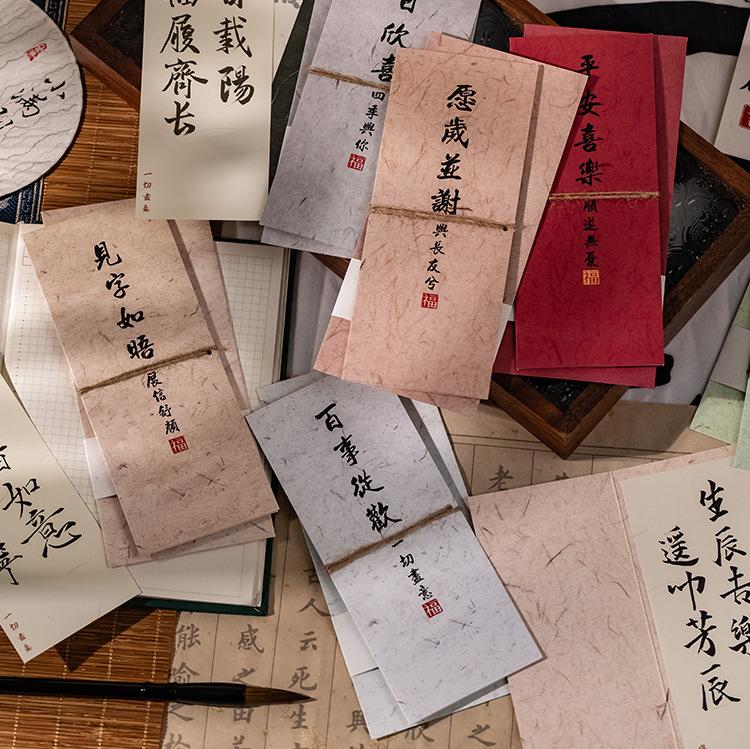 載陽
福履齊长
一切盡意
小滿
欣喜
四季與你
福
愿歲並謝
與長友兮
福
平安喜樂
順遂無憂
福
見字如晤
展信舒顏
福
百事從歡
一切盡意
福
如意
一切盡意
生辰吉樂
遥叩芳辰
老
古人云死生
感之由
能喻之